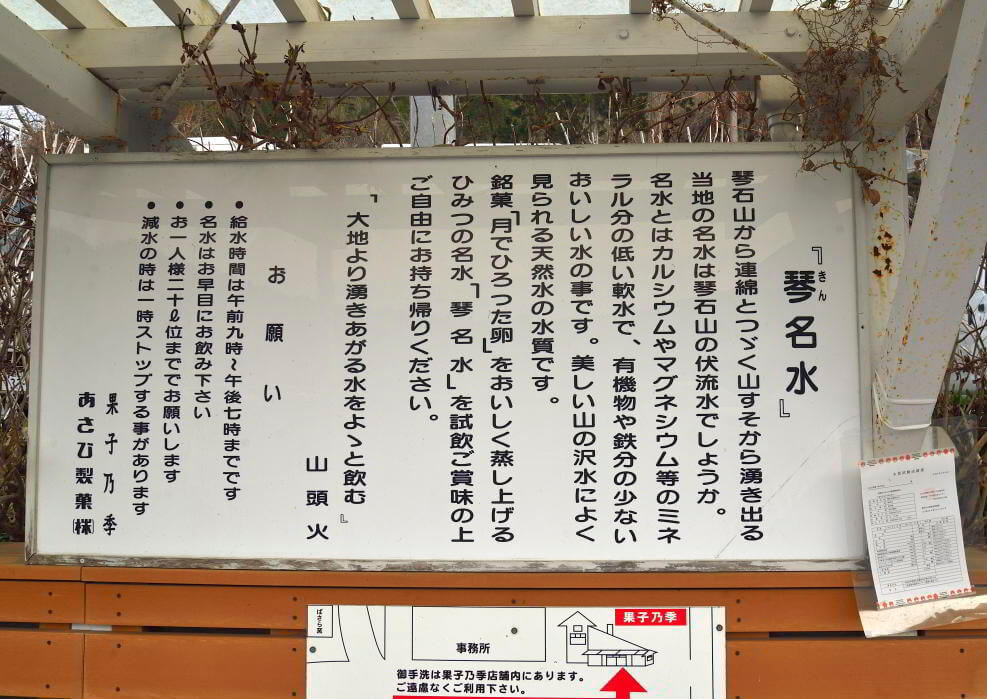 『琴名水』
きん
琴石山から連綿とつゞく山すそから湧き出る
当地の名水は琴石山の伏流水でしょうか。
名水とはカルシウムやマグネシウム等のミネ
ラル分の低い軟水で、有機物や鉄分の少ない
おいしい水の事です。美しい山の沢水によく
見られる天然水の水質です。
銘菓「月でひろった卵」をおいしく蒸し上げる
ひみつの名水「琴名水」を試飲ご賞味の上
ご自由にお持ち帰りください。
『大地より湧きあがる水をよゝと飲む』
山頭火
お願い
●給水時間は午前九時～午後七時までです
●名水はお早目にお飲み下さい
●お一人様二十ℓ位まででお願いします
●減水の時は一時ストップする事があります
果子乃季
あさひ製菓㈱
ばさら窯
事務所
果子乃季
御手洗は果子乃季店舗内にあります。
ご遠慮なくご利用下さい。